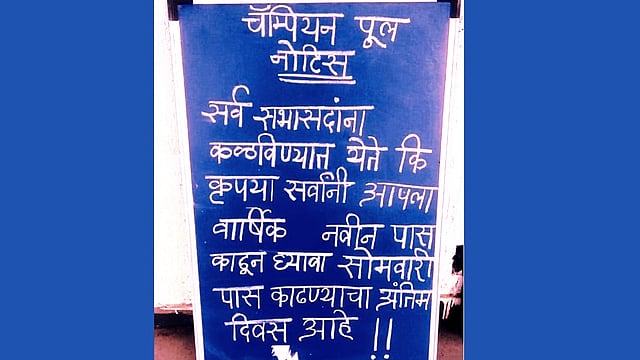 चॅम्पियन पूल
नोटिस
सर्व सभासदांना
कळविण्यात येते कि
कृपया सर्वांनी आपला
वार्षिक नवीन पास
काढून घ्यावा सोमवारी
पास काढण्याचा अंतिम
दिवस आहे !!